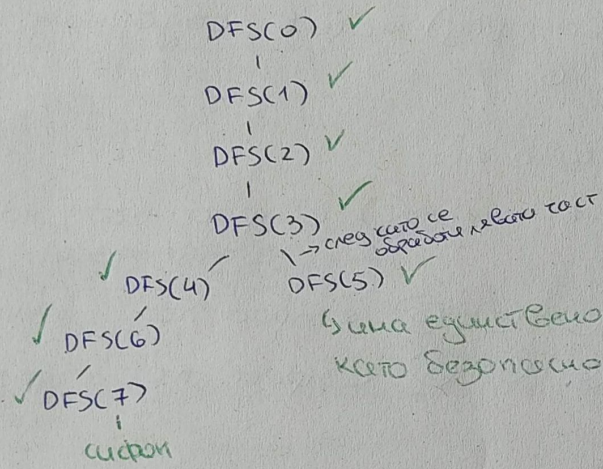 DFS(0) ✓
DFS(1) ✓
DFS(2) ✓
DFS(3) ✓
→ след като се
обработи лявата част
✓ DFS(4)
DFS(5) ✓
✓ DFS(6)
↳ има единствено
като безопасно
✓ DFS(7)
сифон